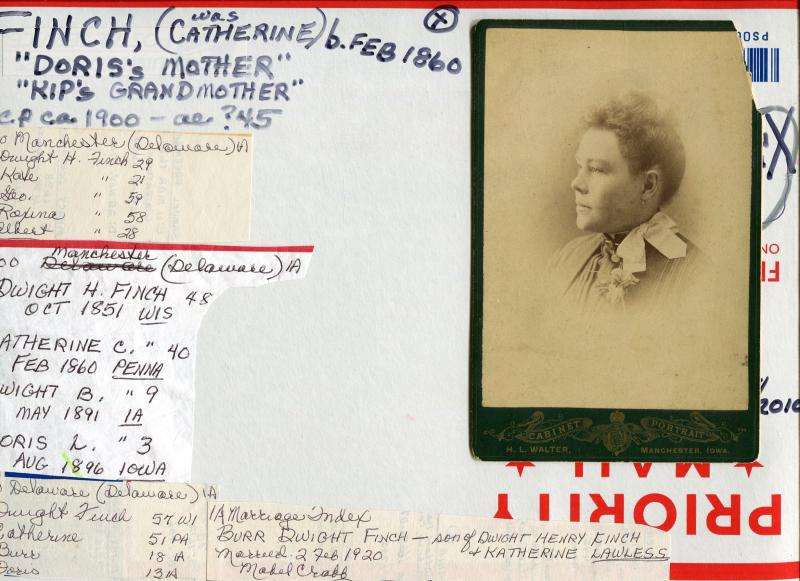 FINCH, (was CATHERINE) b. FEB 1860
"DORIS's MOTHER"
"KIP's GRANDMOTHER"
c.p ca. 1900 - ae. ?45
0 Manchester (Delaware) IA
Dwight H. Finch 29
Kate " 21
Geo. " 59
Roxina " 58
Elbert " 28
Manchester
00 Delaware (Delaware) IA
DWIGHT H. FINCH 48
OCT 1851 WIS
ATHERINE C. " 40
FEB 1860 PENNA
WIGHT B. " 9
MAY 1891 IA
ORIS L. " 3
AUG 1896 IOWA
0 Delaware (Delaware) IA
Dwight Finch 57 WI
Catherine 51 PA
Burr 18 IA
Doris 13 IA
IA Marriage Index
BURR DWIGHT FINCH — son of DWIGHT HENRY FINCH
& KATHERINE LAWLESS
Married 2 Feb 1920
Mabel Crabb
CABINET PORTRAIT
H. L. WALTER, MANCHESTER, IOWA.
PS00
X
ON
F
2010
MAIL
PRIORITY